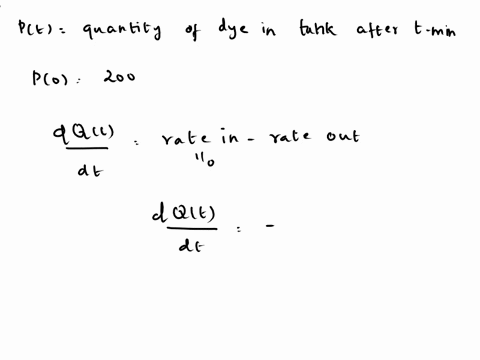 P(t) = quantity of dye in tank after t-min
P(0) : 200
dQ(t)/dt : rate in - rate out
"0
dQ(t)/dt : -